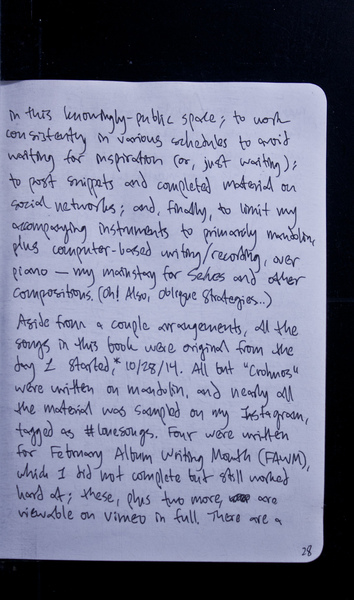 in this knowingly-public space; to work
consistently in various schedules to avoid
waiting for inspiration (or, just waiting);
to post snippets and completed material on
social networks; and, finally, to limit my
accompanying instruments to primarily mandolin,
plus computer-based writing/recording, over
piano — my mainstay for Selves and other
compositions. (Oh! Also, Oblique Strategies..)
Aside from a couple arrangements, all the
songs in this book were original from the
day I started,* 10/28/14. All but "Crohnos"
were written on mandolin, and nearly all
the material was sampled on my Instagram,
tagged as #lovesongs. Four were written
for February Album Writing Month (FAWM),
which I did not complete but still worked
hard at; these, plus two more, are
viewable on Vimeo in full. There are a
28